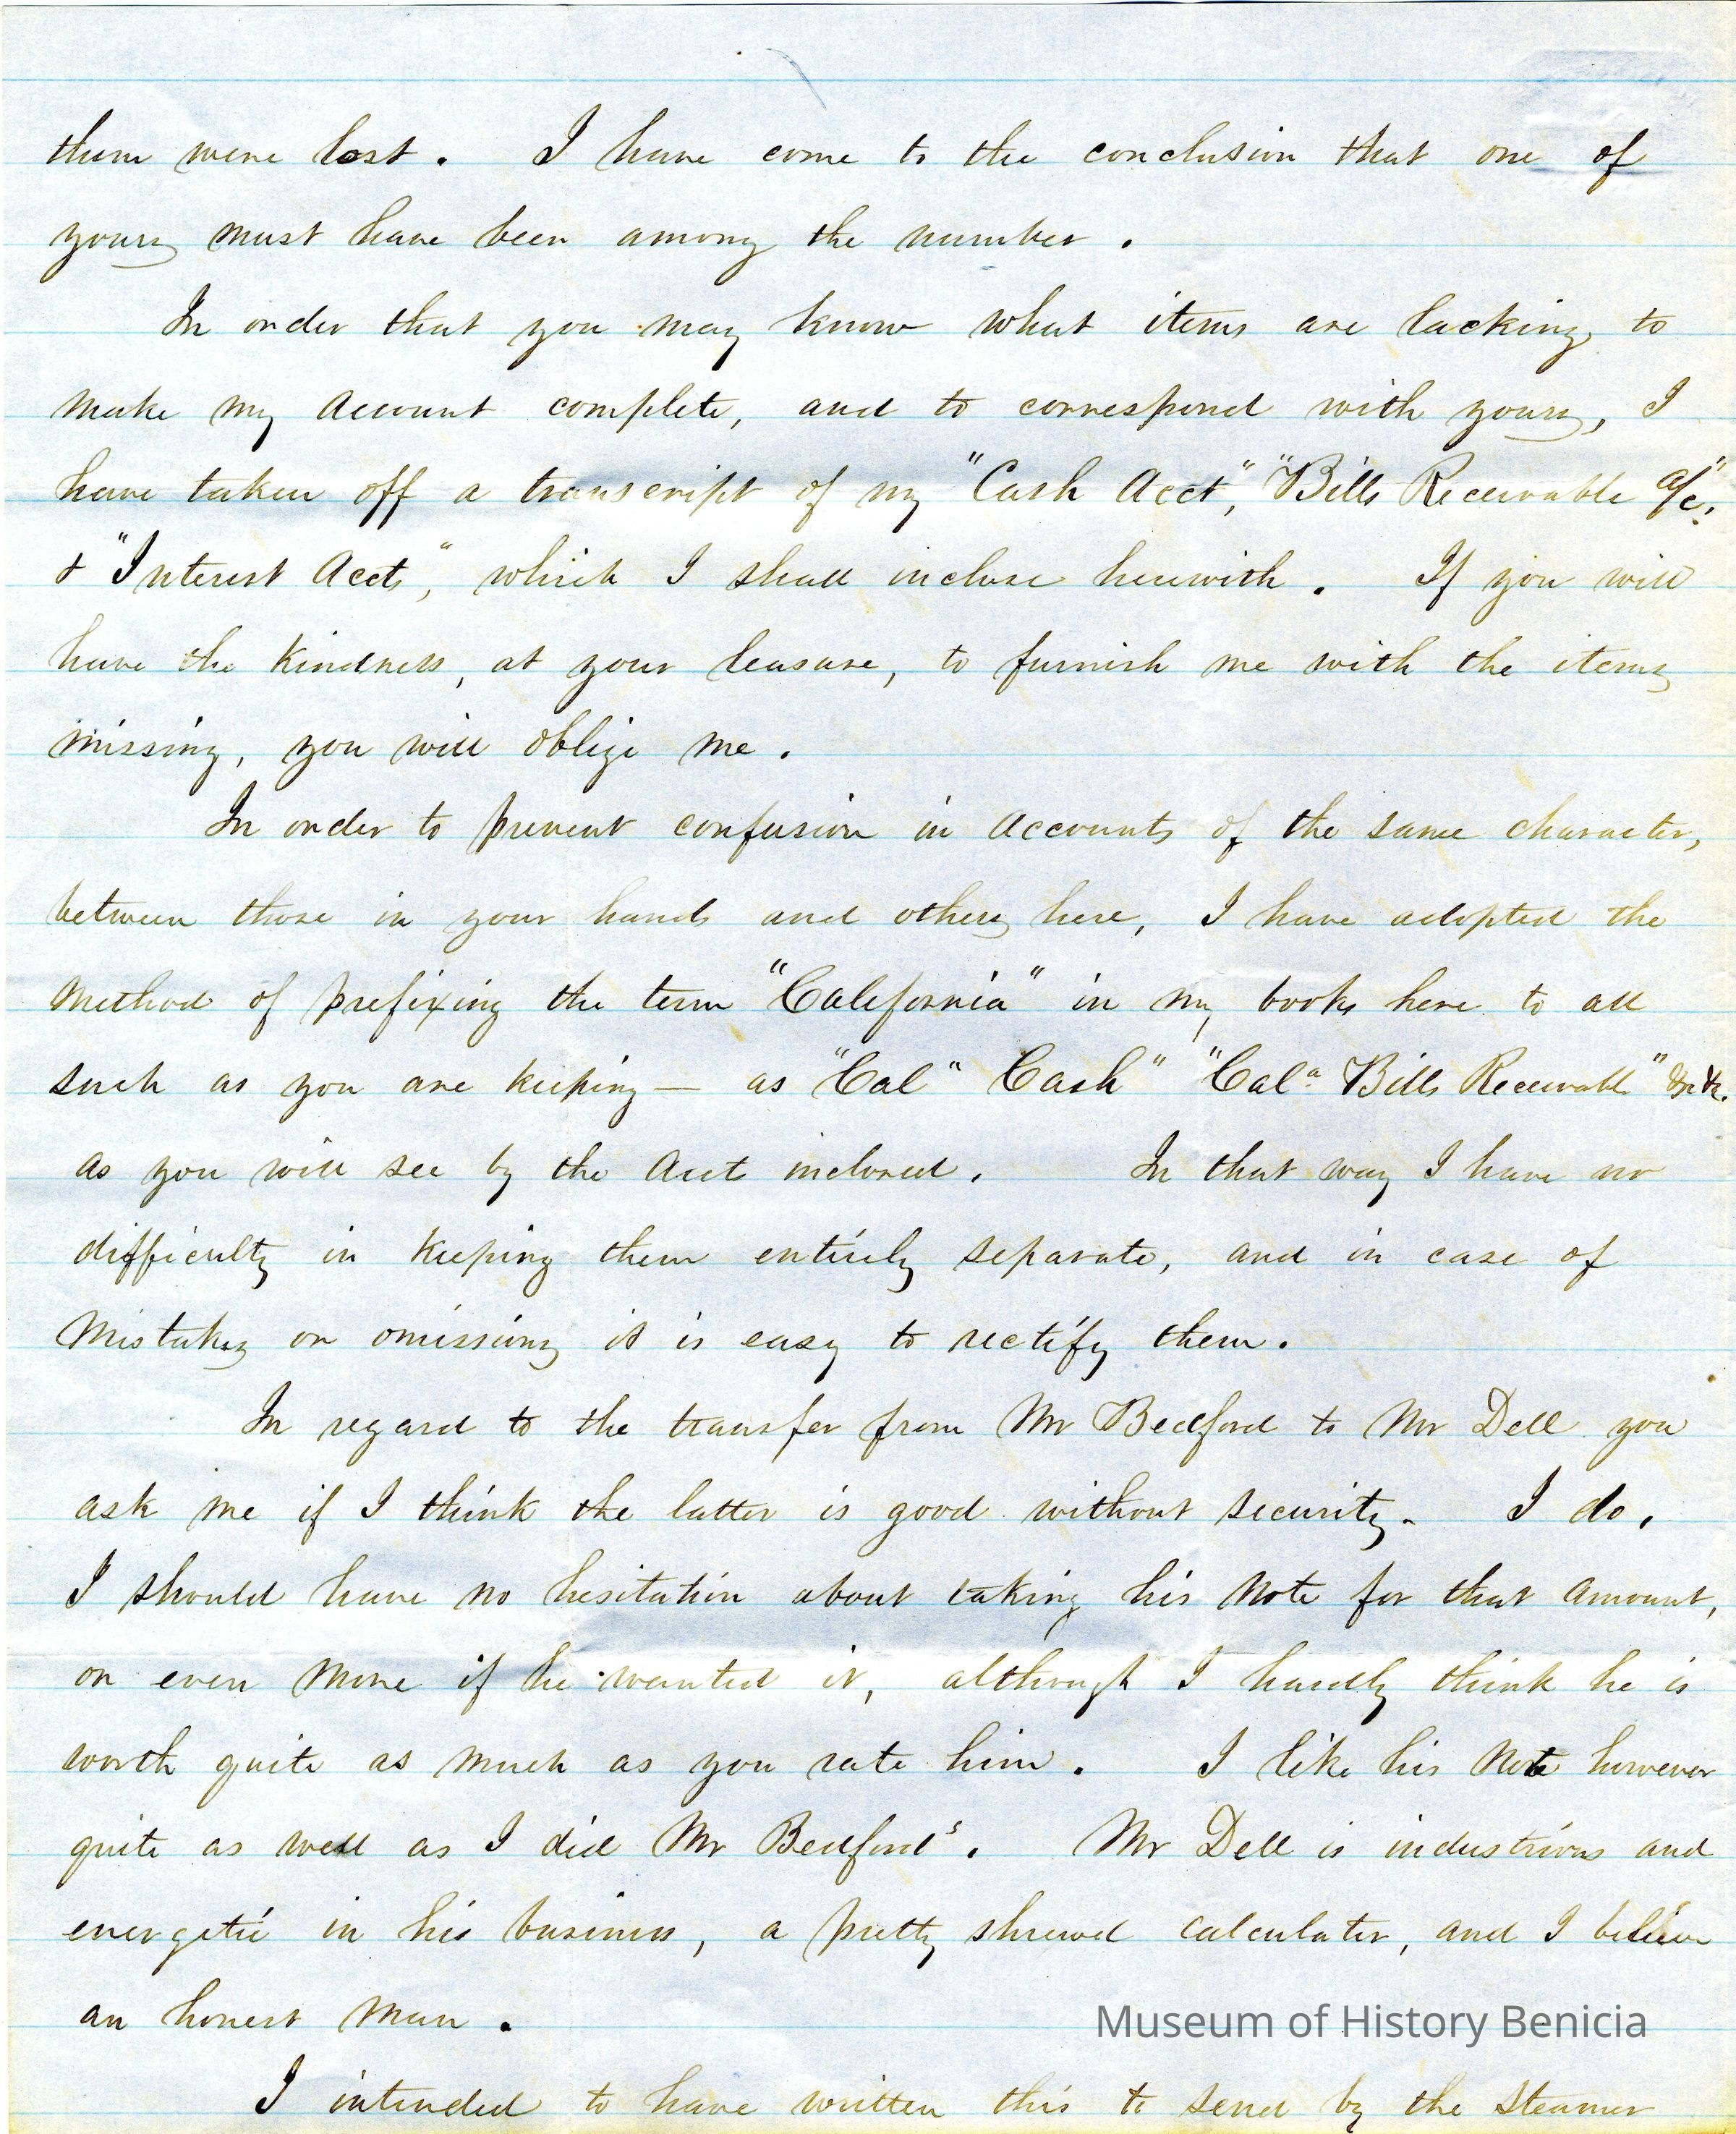 them were lost. I have come to the conclusion that one of
yours must have been among the number.
In order that you may know what items are lacking to
make my account complete, and to correspond with yours, I
have taken off a transcript of my "Cash Acct," "Bills Receivable a/c",
& "Interest Acct", which I shall inclose herewith. If you will
have the kindness, at your leasure, to furnish me with the items
missing, you will oblige me.
In order to prevent confusion in accounts of the same character,
between those in your hands and others here, I have adopted the
method of prefixing the term "California" in my books here to all
such as you are keeping — as "Cal" Cash" "Calª Bills Receivable" &c &c.
as you will see by the Acct inclosed. In that way I have no
difficulty in keeping them entirely separate, and in case of
mistakes or omissions it is easy to rectify them.
In regard to the transfer from Mr Bedford to Mr Dell you
ask me if I think the latter is good without security. I do.
I should have no hesitation about taking his note for that amount,
or even more if he wanted it, although I hardly think he is
worth quite as much as you rate him. I like his Note however
quite as well as I did Mr Bedford's. Mr Dell is industrious and
energetic in his business, a pretty shrewd calculator, and I believe
an honest man.
Museum of History Benicia
I intended to have written this to send by the steamer